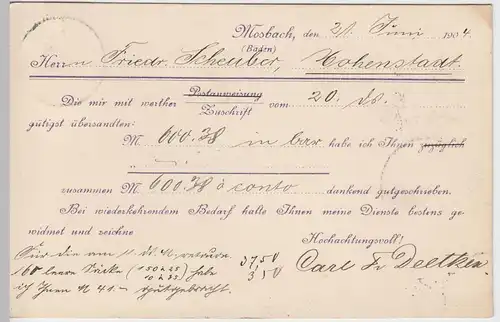 Mosbach, den 21. Juni 1904.
(Baden)
Herrn Friedr. Scheuber, Hohenstadt.
Die mir mit werther Postanweisung
Zuschrift vom 20. ds.
gütigst übersandten
M. 600.38 in bar habe ich Ihnen zuzüglich
zusammen M. 600.38 à conto dankend gutgeschrieben.
Bei wiederkehrendem Bedarf halte Ihnen meine Dienste bestens ge-
widmet und zeichne
Hochachtungsvoll!
Für die am 11. ds. M. retourn. 37,50
160 leere Säcke (150 à 25 / 10 à 35) habe 3,50
ich Ihnen M 41.- gutgebracht.
Carl Fr Deetken